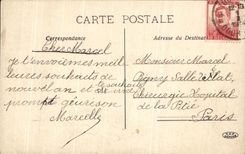 CARTE POSTALE
Correspondance
Adresse du Destinataire
Cher Marcel
Je t'envoie mes meil
leures souhaits de
nouvel an et te souhaite
une prompt guerison
Marcelle
Monsieur Marcel
Salle
chirurgie Hopital
de la Pitié
Paris